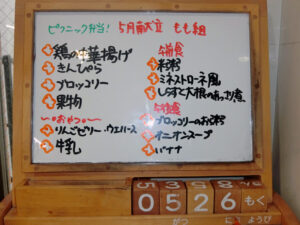 ピクニック弁当! 5月献立 もも組
鶏の唐揚げ
きんぴら
ブロッコリー
果物
～おやつ～
りんごゼリー・ウエハース
牛乳
午前食
お粥
ミネストローネ風
しらすと大根のあっさり煮
午後食
ブロッコリーのお粥
オニオンスープ
バナナ
0526もく
がつ にち ようび